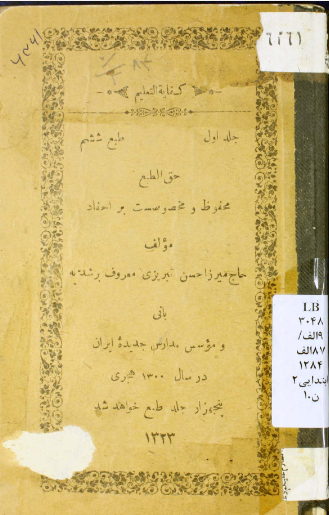 كفاية التعليم
جلد اول طبع ششم
حق الطبع
محفوظ و مخصوصست بر احفاد
مؤلف
حاج میرزا حسن تبریزی معروف برشدیه
بانی
و مؤسس مدارس جدیدهٔ ایران
در سال ۱۳۰۰ هجری
پنجهزار جلد طبع خواهد شد
۱۳۲۳
LB
۳۰۴۸
الف۹/
الف۸۷
۱۲۸۴
ابتدایی۲
ن.۱